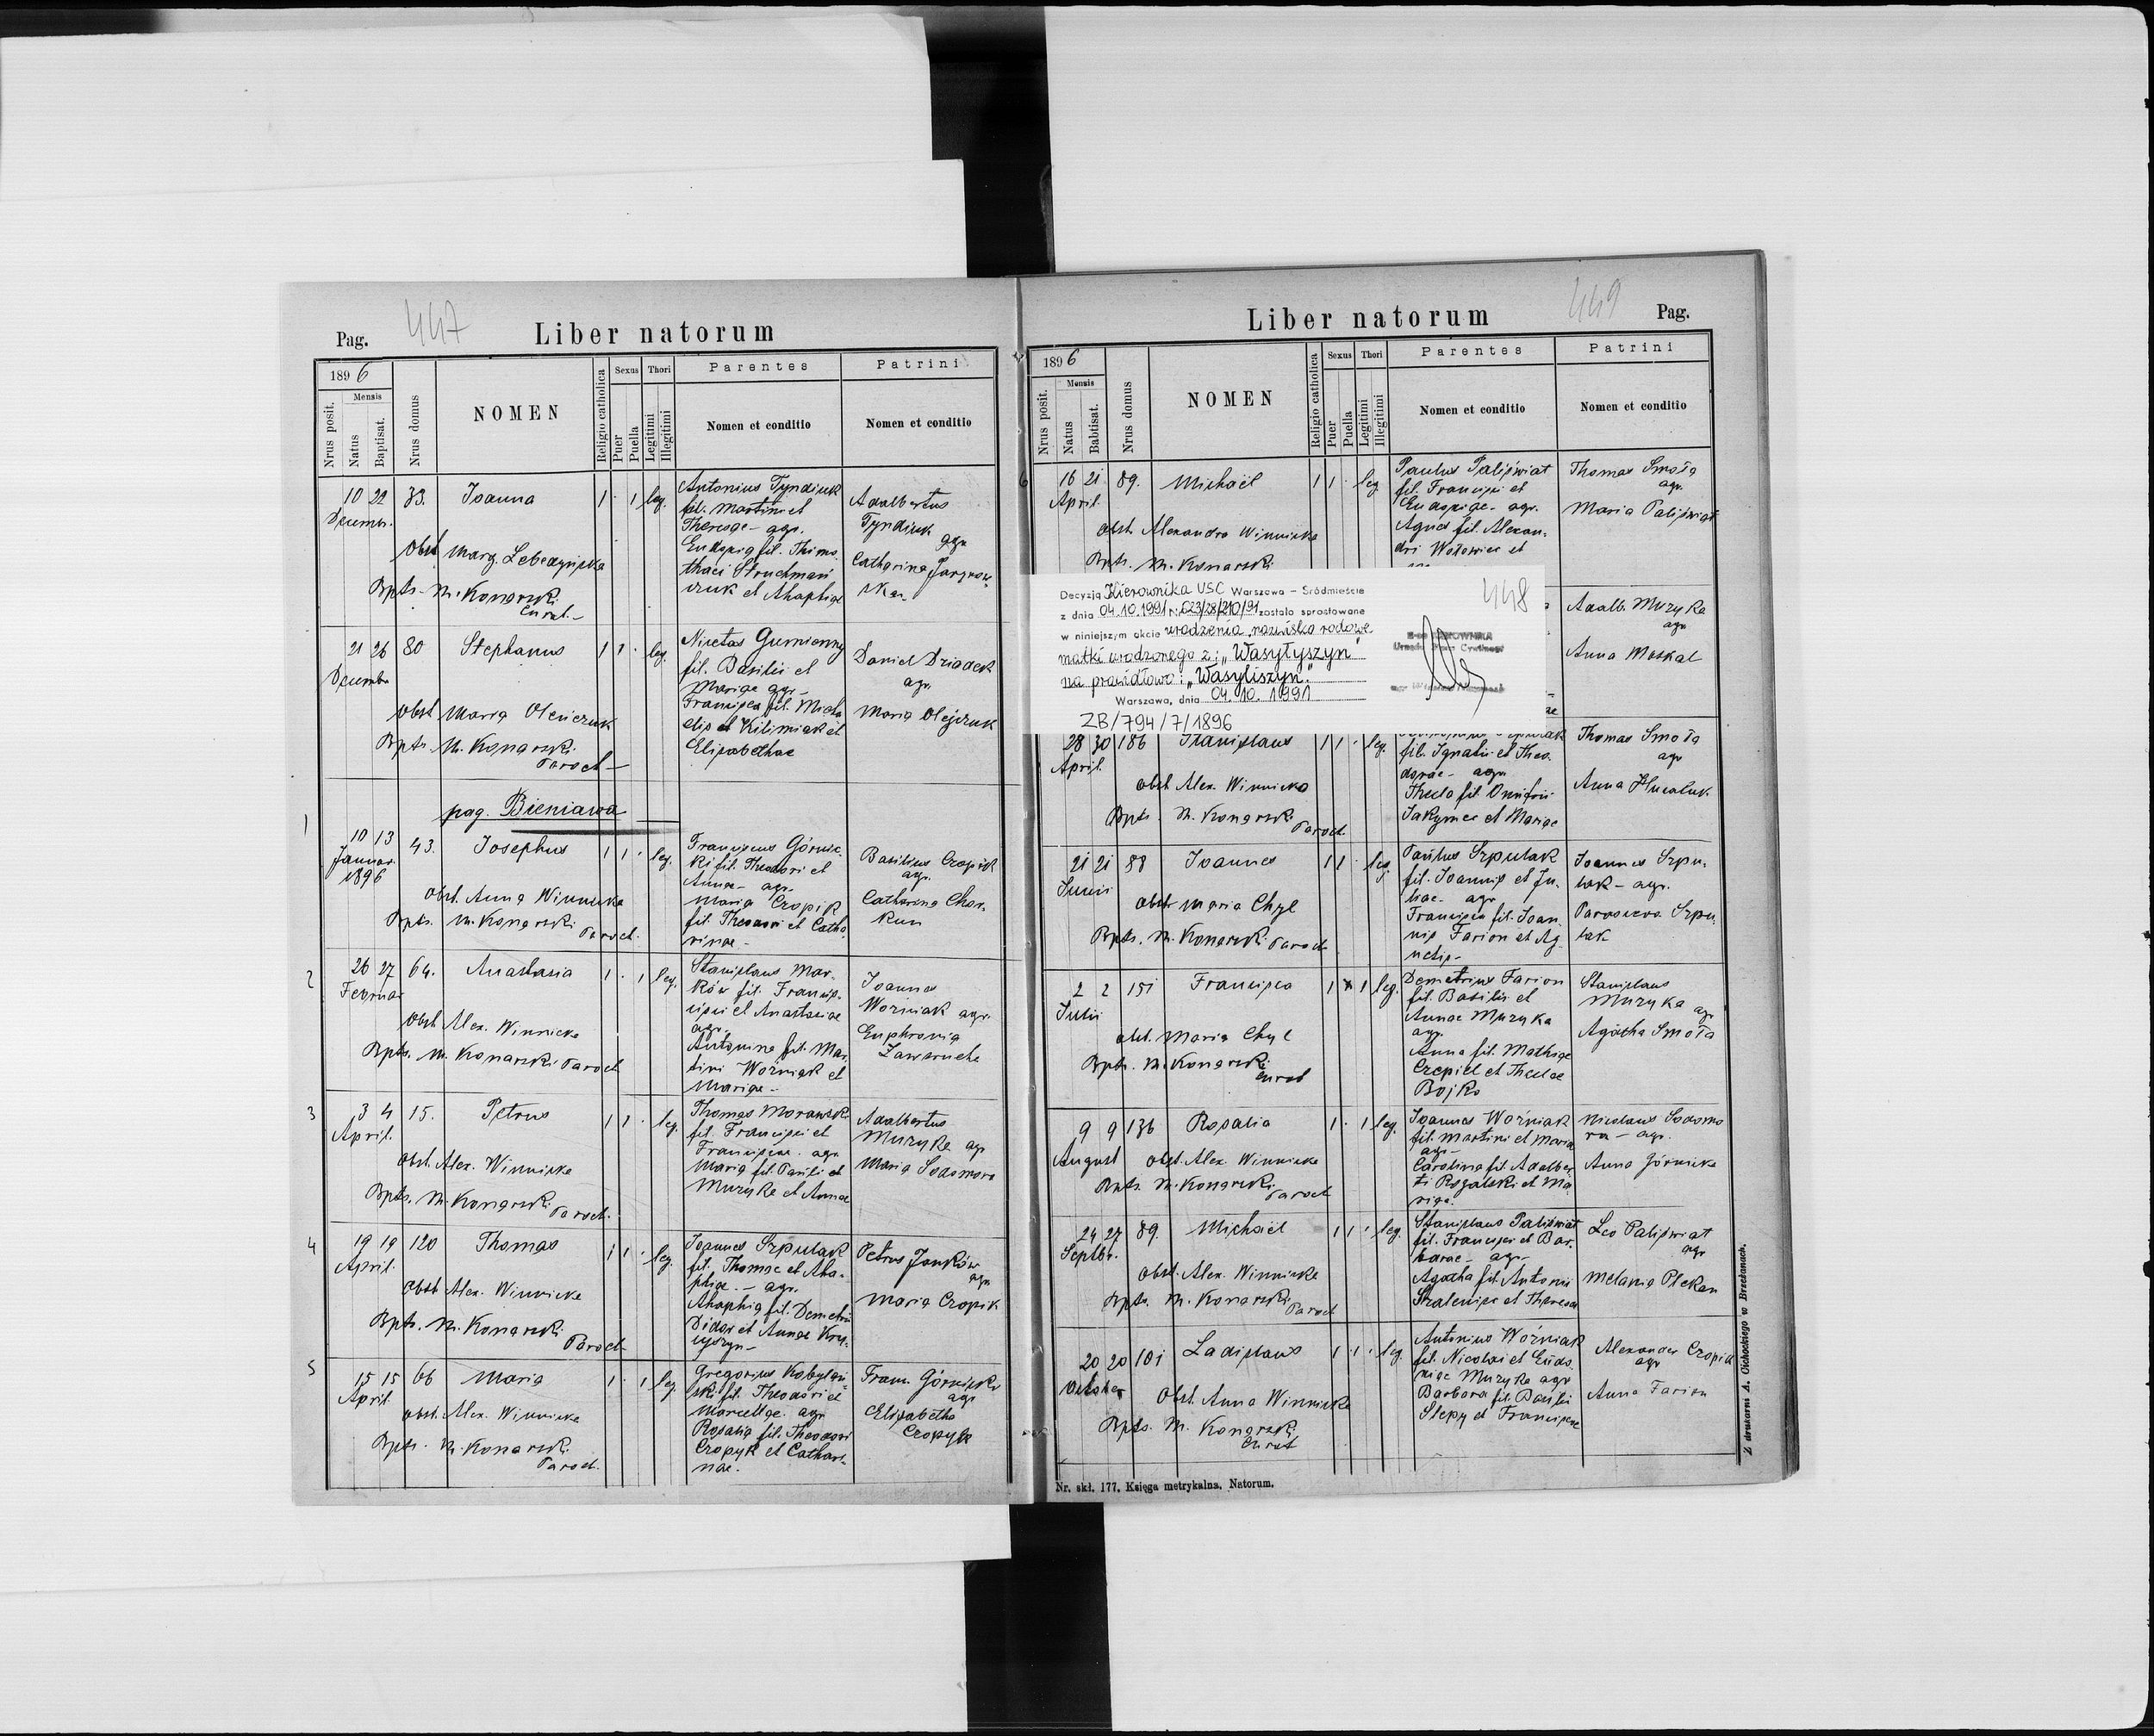 447
Pag.
Liber natorum
1896
Mensis
Nrus posit.
Natus
Baptisat.
Nrus domus
NOMEN
Religio catholica
Sexus
Puer
Puella
Thori
Legitimi
Illegitimi
Parentes
Nomen et conditio
Patrini
Nomen et conditio
10 22 33. Joanna 1 · 1 leg.
Decembr.
Obst. Marg. Lebedyńska
Bpts. M. Konarski
Curat.
Antonius Tyndiuk
fil. Martini et
Theresae - agr.
Eudoxia fil. Thimo
et Ahaphiae
Adalbertus
Tyndiuk
agr.
Catharina
21 26 80 Stephanus 1 1 · leg.
Decembr
Obst Maria Oleńczuk
Bpts. M. Konarski
Paroch
Nicetas Gumienny
fil. Basilii et
Mariae agr.
Francisca fil. Micha
elis et Kilimiak et
Elisabethae
Daniel Dziadek
agr.
Maria Olejczuk
pag. Bieniawa
1
10 13 43. Josephus 1 1 · leg.
Januar.
1896
Obst. Anna Winnicka
Bpts. M. Konarski Paroch.
Franciscus Górnic-
ki fil. Theodori et
Annae - agr.
Maria Cropik
fil. Theodori et Catha
rinae -
Basilius Cropik
agr.
Catharina Char-
kun
2
26 27 64. Anastasia 1 · 1 leg.
Februar
Obst Alex. Winnicka
Bpts. M. Konarski Paroch
Stanislaus Mar-
ków fil. Francis-
cisci et Anastasiae
agr.
Antonina fil. Mar-
tini Woźniak et
Mariae -
Joannes
Woźniak agr.
Euphrosia
Zawerucha
3
3 4 15. Petrus 1 1 · leg.
April.
Obst. Alex. Winnicka
Bpts. M. Konarski Paroch.
Thomas Morawski
fil. Francisci et
Franciscae agr.
Maria fil. Basili et
Muzyka et Annae
Adalbertus
Muzyka agr
Maria Sodomora
4
19 19 120 Thomas 1 1 · leg.
April.
Obst Alex. Winnicka
Bpts. M. Konarski
Paroch
Joannes Szpulak
fil. Thomae et Aha-
phiae. - agr.
Ahaphia fil. Demetrii
Didor et Annae
Petrus Janków
agr
Maria Cropik
5
15 15 66 Maria 1 · 1 leg.
April.
Obst. Alex. Winnicka
Bpts. M. Konarski
Paroch.
Gregorius Kobylań-
ski fil. Theodori et
Marcellae. agr
Rosalia fil. Theodori
Cropyk et Cathari-
nae.
Franc. Górnicki
agr
Elisabetha
Cropyk
449
Liber natorum
Pag.
1896
Mensis
Nrus posit.
Natus
Babtisat.
Nrus domus
NOMEN
Religio catholica
Sexus
Puer
Puella
Thori
Legitimi
Illegitimi
Parentes
Nomen et conditio
Patrini
Nomen et conditio
6
16 21. 89. Michaël 1 1 · leg.
April.
Obst. Alexandra Winnicka
Bpts. M. Konarski
Paulus Paliświat
fil. Francisci et
Eudoxiae - agr.
Agnes fil. Alexan-
dri Wołowiec et
Thomas Smoła
agr.
Maria Paliświat
448
Decyzją Kierownika USC Warszawa - Śródmieście
z dnia 04.10.1991 r. 023/28/210/91 zostało sprostowane
w niniejszym akcie urodzenia nazwisko rodowe
matki urodzonego z: „Wasyłyszyn"
na prawidłowo: „Wasyliszyn".
Warszawa, dnia 04.10.1991
ZB/794/7/1896
KIEROWNIKA
Urzędu Stanu Cywilnego
Adalb. Muzyka
agr
Anna Moskal
28 30 186 Stanislaus 1 1 · leg.
April.
Obst Alex. Winnicka
Bpts. M. Konarski Paroch.
fil. Ignatii et Theo-
dorae - agr.
Thecla fil. Onufrii
Jakymec et Mariae
Thomas Smoła
agr
Anna Hucaluk
21 21 88 Joannes 1 1 · leg.
Junii
Obst. Maria Chyl
Bpts. M. Konarski Paroch
Paulus Szpulak
fil. Joannis et Ju-
liae - agr
Francisca fil. Joan
nis Farion et Ag-
netis -
Joannes Szpu-
lak - agr.
Parasceva Szpu-
lak
2 2 151 Francisca 1 · 1 leg.
Julii
Obst. Maria Chyl
Bpts. M. Konarski
Curat
Demetrius Farion
fil. Basilii et
Annae Muzyka
agr.
Anna fil. Mathiae
Czepiel et Theclae
Bojko
Stanislaus
Muzyka agr
Agatha Smoła
9 9 136 Rosalia 1 · 1 leg.
August
Obst. Alex. Winnicka
Bpts. M. Konarski
Paroch
Joannes Woźniak
fil. Martini et Maria
agr -
Carolina fil. Adalber
ti Rogalski et Ma
riae.
Nicolaus Sodomo
ra - agr.
Anna Górnicka
24 27 89. Michaël 1 1 · leg.
Septbr.
Obst. Alex. Winnicka
Bpts. M. Konarski
Paroch
Stanislaus Paliświat
fil. Francisci et Bar-
barae - agr -
Agatha fil. Antonii
et Theresae
Leo Paliświat
agr
Melania Plekan
20 20 101 Ladislaus 1 1 · leg.
October
Obst. Anna Winnicka
Bpts. M. Konarski
Curat
Antonius Woźniak
fil. Nicolai et Eudo-
xiae Muzyka agr
Barbara fil. Basilii
Slepy et Franciscae
Alexander Cropik
agr
Anna Farion
Nr. skł. 177. Księga metrykalna, Natorum.
Z drukarni A. Cichockiego w Brzeżanach.